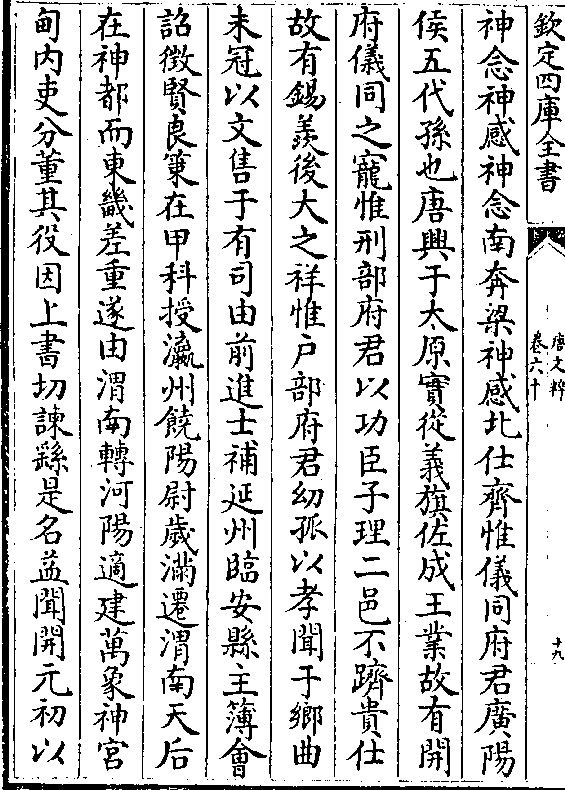 欽定四庫全書
唐文粹
卷六十
十九
神念神感神念南奔梁神感北仕齊惟儀同府君廣陽
侯五代孫也唐興于太原實從義旗佐成王業故有開
府儀同之寵惟刑部府君以功臣子理二邑不躋貴仕
故有錫羨後大之祥惟户部府君幼孤以孝聞于鄉曲
未冠以文售于有司由前進士補延州臨安縣主簿會
詔徴賢良策在甲科授瀛州饒陽尉歲滿遷渭南天后
在神都而東畿差重遂由渭南轉河陽適建萬象神宮
甸内吏分董其役因上書切諫繇是名益聞開元初以